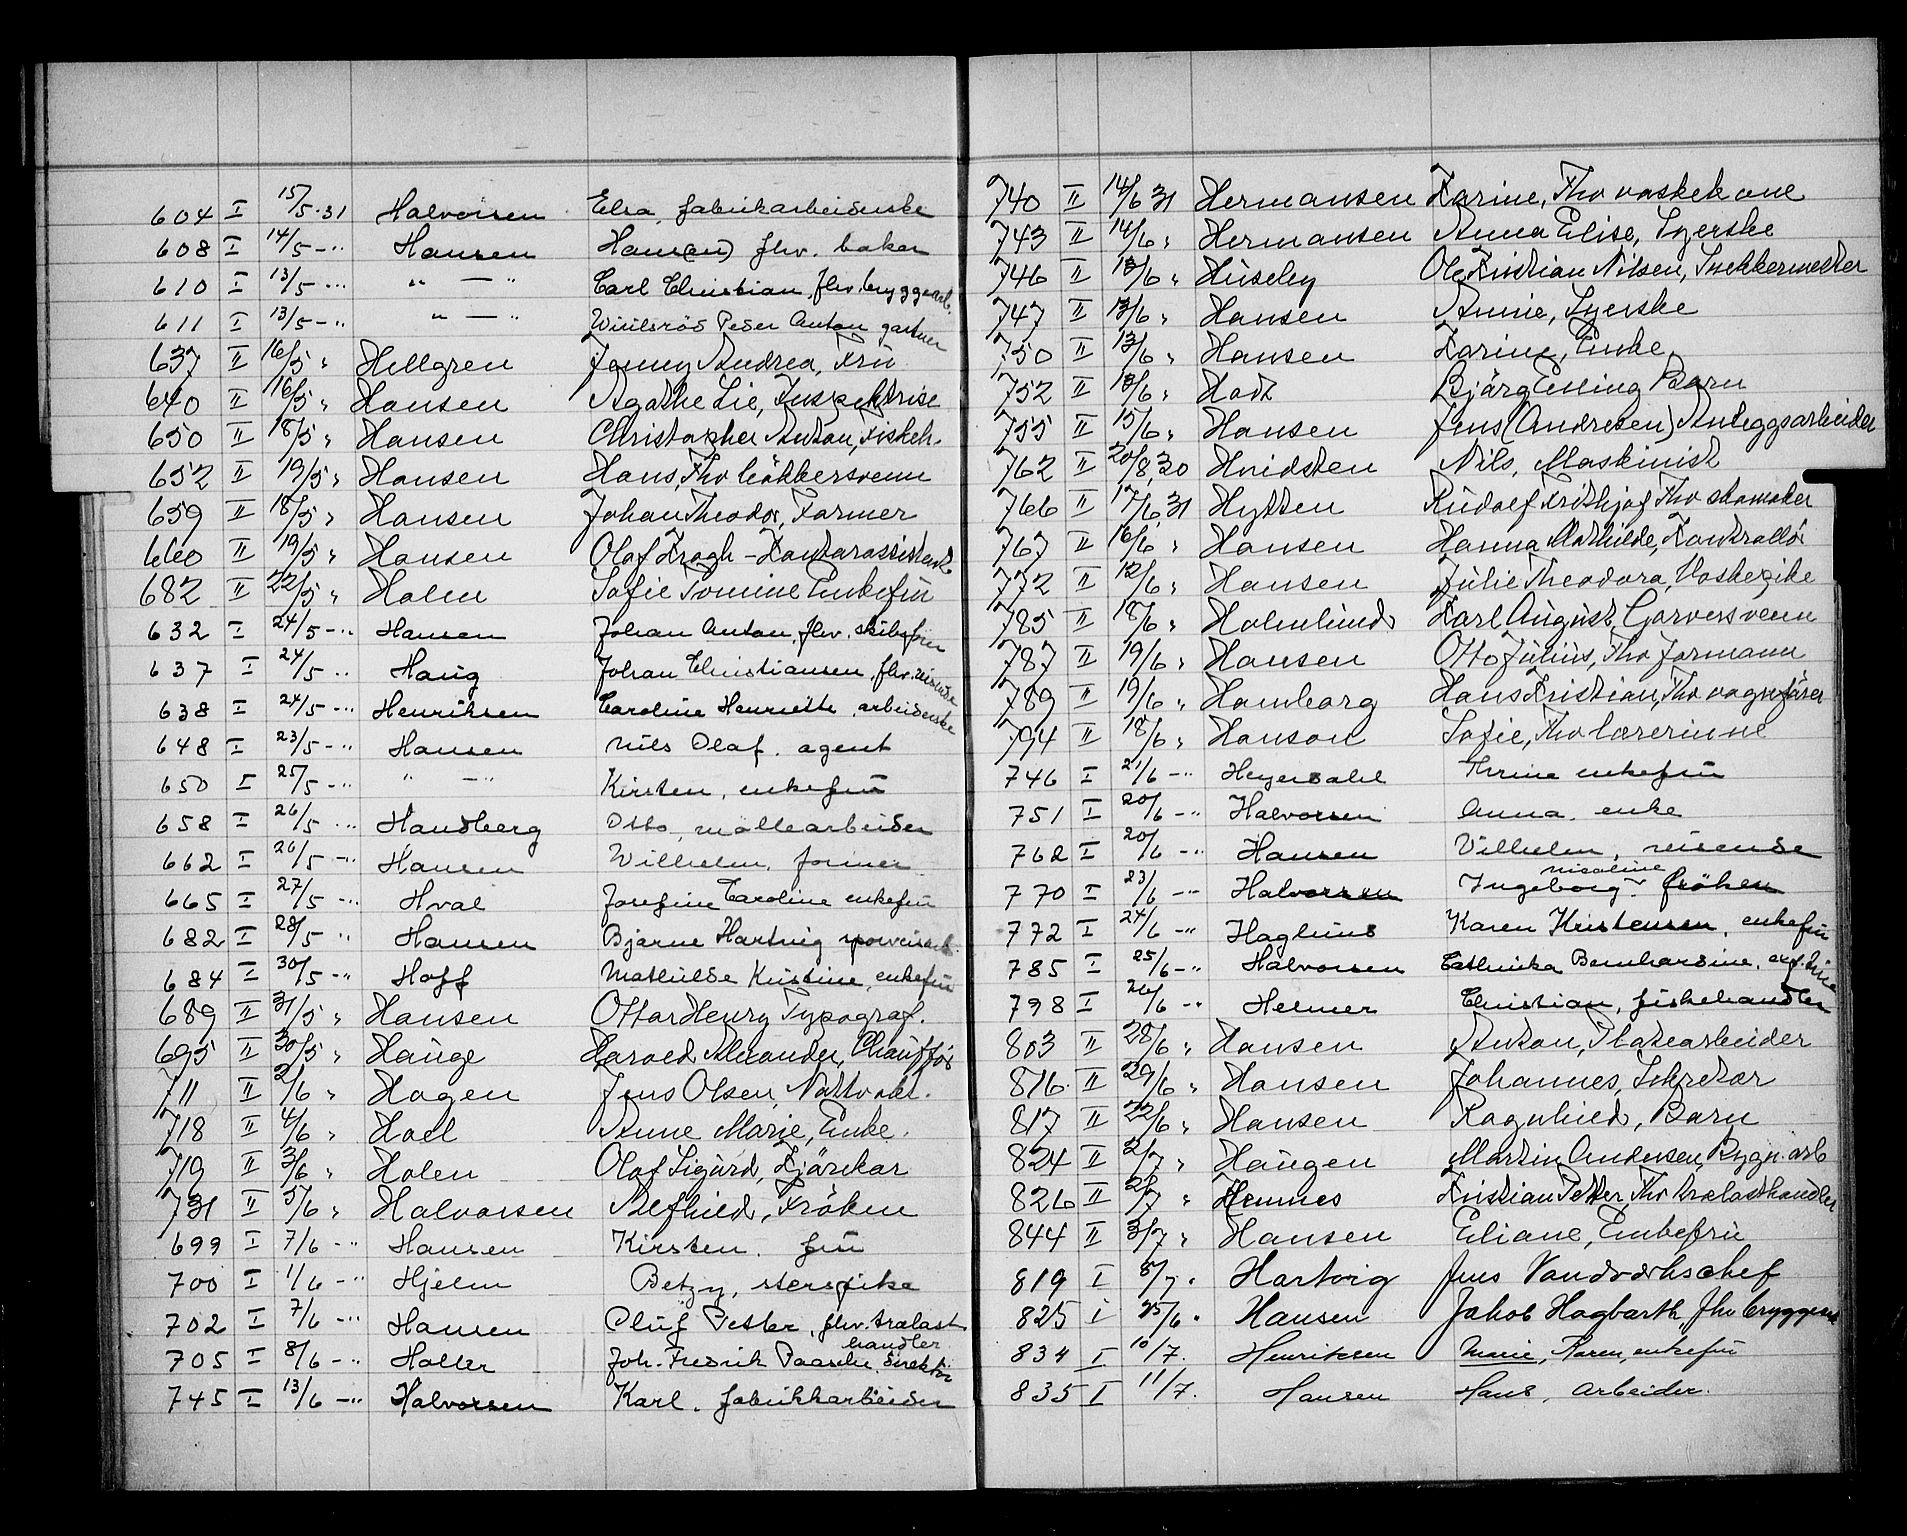 604 I 15/5-31 Halvorsen Elsa, fabrikarbeiderske
608 I 14/5 -" Hansen Hans(en) fhv. baker
610 I 13/5 -" " — " Carl Christian, fhv. bryggearb.
611 I 13/5 -" " — " Peder Anton gartner
637 II 16/5 " Hellgren Jenny Andrea, Frü
640 II 16/5 " Hansen Agathe Lie, Inspektrise
650 II 18/5 " Hansen Christopher Anton, Fiskeh.
652 II 19/5 " Hansen Hans, Fhv bökkersvenn
659 II 18/5 " Hansen Johan Theodor, Farmer
660 II 19/5 " Hansen Olaf Krogh - Kontorassistent
682 II 22/5 " Holm Sofie Tomine Enkefrü
632 I 24/5 -" Hansen Johan Anton, fhv. skibsfører
637 I 24/5 " Haug Johan Christiansen, fhv. reisende
638 I 24/5 -" Henriksen Caroline Henriette, arbeiderske
648 I 23/5 -" Hansen Nils Olaf. agent
650 I 25/5 -" " — " Kirsten, enkefrü
658 I 26/5 -" Handberg Otto, möllearbeider
662 I 26/5 -" Hansen Wilhelm, former
665 I 27/5 -" Hval Josefine Caroline enkefrü
682 I 28/5 " Hansen Bjarne Hartvig sporveisarb.
684 I 30/5 -" Hoff Mathilde Kristine, enkefrü
689 II 31/5 " Hansen Ottar Henry Typograf.
695 II 30/5 " Hauge Harald Alexander, Chaufför
711 II 2/6 " Hagen Jens Olsen, Nattvakt.
718 II 4/6 " Hoel Anne Marie, Enke.
719 II 3/6 " Holen Olaf Sigurd, Kjörekar
731 II 5/6 " Halvorsen Alfhild, Fröken
699 I 7/6 -" Hansen Kirsten. frü
700 I 1/6 -" Hjelm Betzy, sterspike
702 I 7/6 -" Hansen Oluf Petter, fhv. trælast
handler
705 I 8/6 -" Holter Joh. Fredrik Paasche direktör
745 I 13/6 -" Halvorsen Karl. fabrikkarbeider
740 II 14/6 31 Hermansen Karine, Fhv vaskekone
743 II 14/6 " Hermansen Anna Elise, Syerske
746 II 13/6 " Huseby Ole Kristian Nilsen, Snekkermester
747 II 13/6 " Hansen Annie, Syerske
750 II 13/6 " Hansen Karine, Enke
752 II 13/6 " Hodt Bjärg Elling Barn
755 II 15/6 " Hansen Jens (Andresen) Anleggsarbeider
762 II 20/8 30 Hvidsten Nils, Maskinist
766 II 17/6 31 Hytten Rudolf Frithjof Fhv skomaker
767 II 16/6 " Hansen Hanna Mathilde, Kontrollör
772 II 12/6 " Hansen Julie Theodora, Vaskepike
785 II 18/6 " Holmlund Karl August, Garversvenn
787 II 19/6 " Hansen Otto Julius, Fhv formann
789 II 19/6 " Hamborg Hans Kristian, Fhv vognfører
794 II 18/6 " Hanson Sofie, Fhv lærerinne
746 I 21/6 -" Heyerdahl Thrine enkefrü
751 I 20/6 -" Halvorsen Anna. enke
762 I 20/6 -" Hansen Vilhelm, reisende
nicoline
770 I 23/6 -" Halvorsen Ingeborg fröken
772 I 24/6 -" Haglund Karen Kristensen, enkefrü
785 I 25/6 -" Halvorsen Cathinka Bernhardine,
798 I 26/6 -" Helmer Christian, fiskehandler
803 II 28/6 " Hansen Anton, Platearbeider
816. II 29/6 " Hansen Johannes, Sekretær
817 II 22/6 " Hansen Ragnhild, Barn
824 II 2/7 " Haugen Martin Andersen, Bygn. arb
826 II 2/7 " Hennes Kristian Petter, Fhv trælasthandler
844 II 3/7 " Hansen Eliane, Enkefrü
819 I 8/7. Hartvig Jens Vandværkschef
825 I 25/6. Hansen Jakob Hagbarth, fhv bryggem
834 I 10/7. Henriksen Marie, Karen, enkefrü
835 I 11/7. Hansen Hans, arbeider.